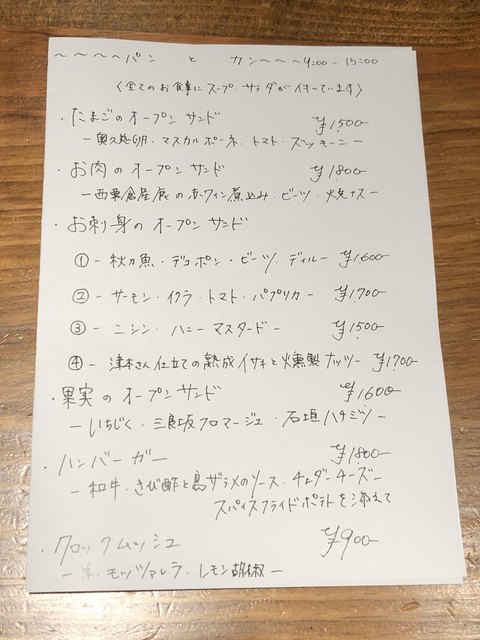 〜〜〜〜パン と カン〜〜〜9:00-15:00
〈全てのお食事にスープ、サラダが付いています〉
・たまごのオープンサンド ¥1500-
ー奥久慈卵・マスカルポーネ、トマト・ズッキーニー
・お肉のオープンサンド ¥1800-
ー西粟倉産鹿の赤ワイン煮込み・ビーツ・焼ナスー
・お刺身のオープンサンド
①ー秋刀魚・デコポン・ビーツ・ディルー ¥1600
②ーサーモン・イクラ・トマト・パプリカー ¥1700-
③ーニシン・ハニーマスタードー ¥1500
④ー津本さん仕立ての熟成イサキと燻製ナッツー ¥1700
・果実のオープンサンド ¥1600-
ーいちじく・三良坂フロマージュ・石垣ハチミツー
・ハンバーガー ¥1800-
ー和牛・きび酢と島ザラメのソース・チェダーチーズー
スパイスフライドポテトを添えて
・クロックムッシュ ¥900-
ー ・モッツァレラ・レモン胡椒ー